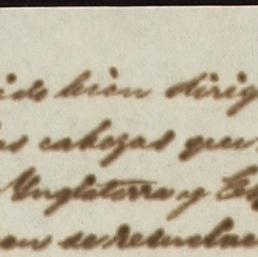 ido bien dirig
as cabezas que
Ynglaterra y Es
an se resuelva